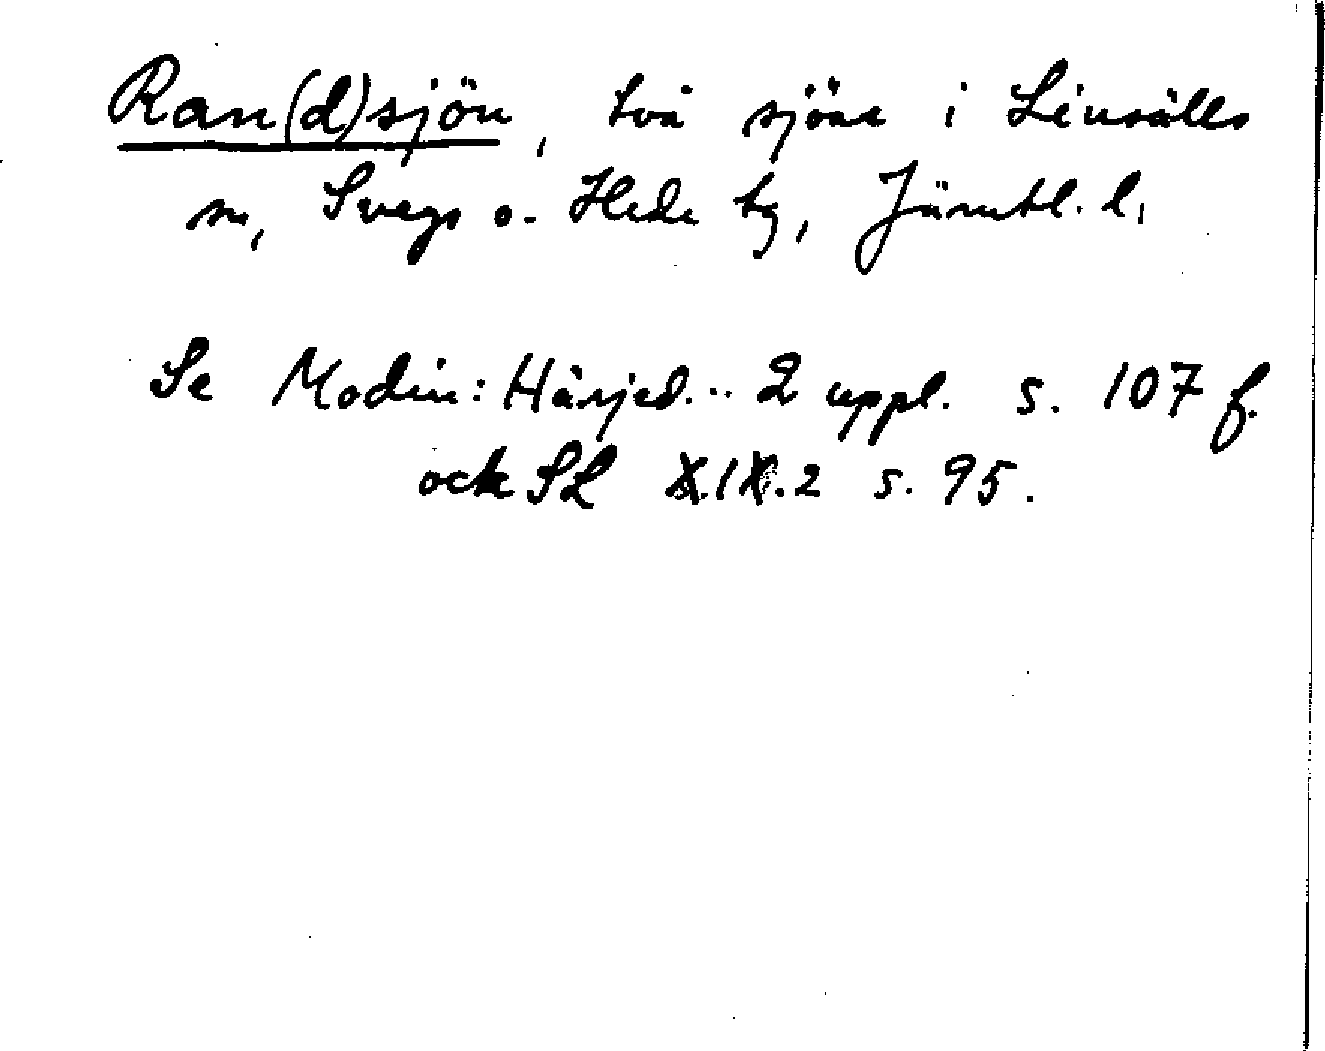 Ran(d)sjön, två sjöar i Linsälls
sn, Svegs o. Hede tg, Jämtl. l.
Se Modin: Härjed... 2 uppl. s. 107 f.
ock SL XIX.2 s. 95.